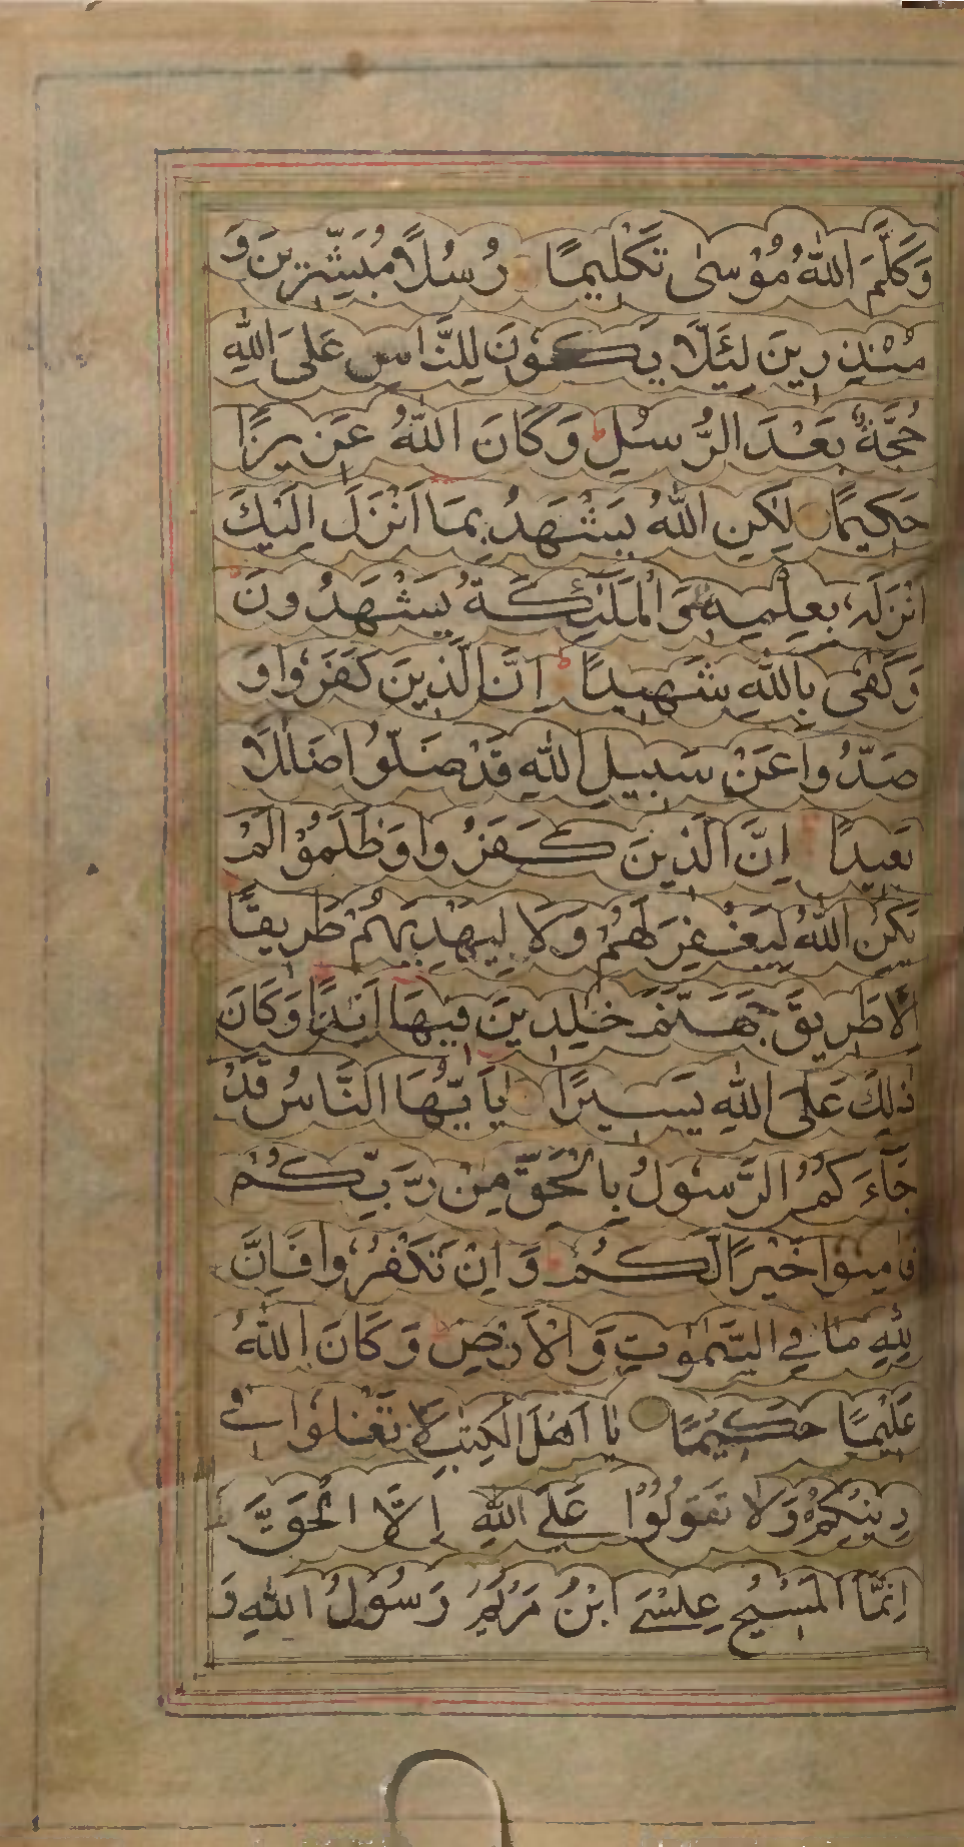 وَكَلَّمَ اللّٰهُ مُوْسٰى تَكْلِيمًا رُسُلًا مُبَشِّرِينَ وَ
مُنْذِرِينَ لِئَلَّا يَكُوْنَ لِلنَّاسِ عَلَى اللّٰهِ
حُجَّةٌ بَعْدَ الرُّسُلِ وَكَانَ اللّٰهُ عَزِيزًا
حَكِيمًا لٰكِنِ اللّٰهُ يَشْهَدُ بِمَا اَنْزَلَ اِلَيْكَ
اَنْزَلَهٗ بِعِلْمِهٖ وَالْمَلٰٓئِكَةُ يَشْهَدُونَ
وَكَفٰى بِاللّٰهِ شَهِيدًا اِنَّ الَّذِينَ كَفَرُوا وَ
صَدُّوا عَنْ سَبِيلِ اللّٰهِ قَدْ ضَلُّوا ضَلٰلًا
بَعِيدًا اِنَّ الَّذِينَ كَفَرُوا وَظَلَمُوْا لَمْ
يَكُنِ اللّٰهُ لِيَغْفِرَ لَهُمْ وَلَا لِيَهْدِيَهُمْ طَرِيقًا
اِلَّا طَرِيقَ جَهَنَّمَ خٰلِدِينَ فِيهَا اَبَدًا وَكَانَ
ذٰلِكَ عَلَى اللّٰهِ يَسِيرًا يٰاَيُّهَا النَّاسُ قَدْ
جَآءَكُمُ الرَّسُوْلُ بِالْحَقِّ مِنْ رَبِّكُمْ
فَاٰمِنُوا خَيْرًا لَكُمْ وَاِنْ تَكْفُرُوْا فَاِنَّ
لِلّٰهِ مَا فِي السَّمٰوٰتِ وَالْاَرْضِ وَكَانَ اللّٰهُ
عَلِيْمًا حَكِيْمًا يٰا اَهْلَ الْكِتٰبِ لَا تَغْلُوْا فِي
دِيْنِكُمْ وَلَا تَقُوْلُوْا عَلَى اللّٰهِ اِلَّا الْحَقَّ
اِنَّمَا الْمَسِيْحُ عِيْسَى ابْنُ مَرْيَمَ رَسُوْلُ اللّٰهِ وَ